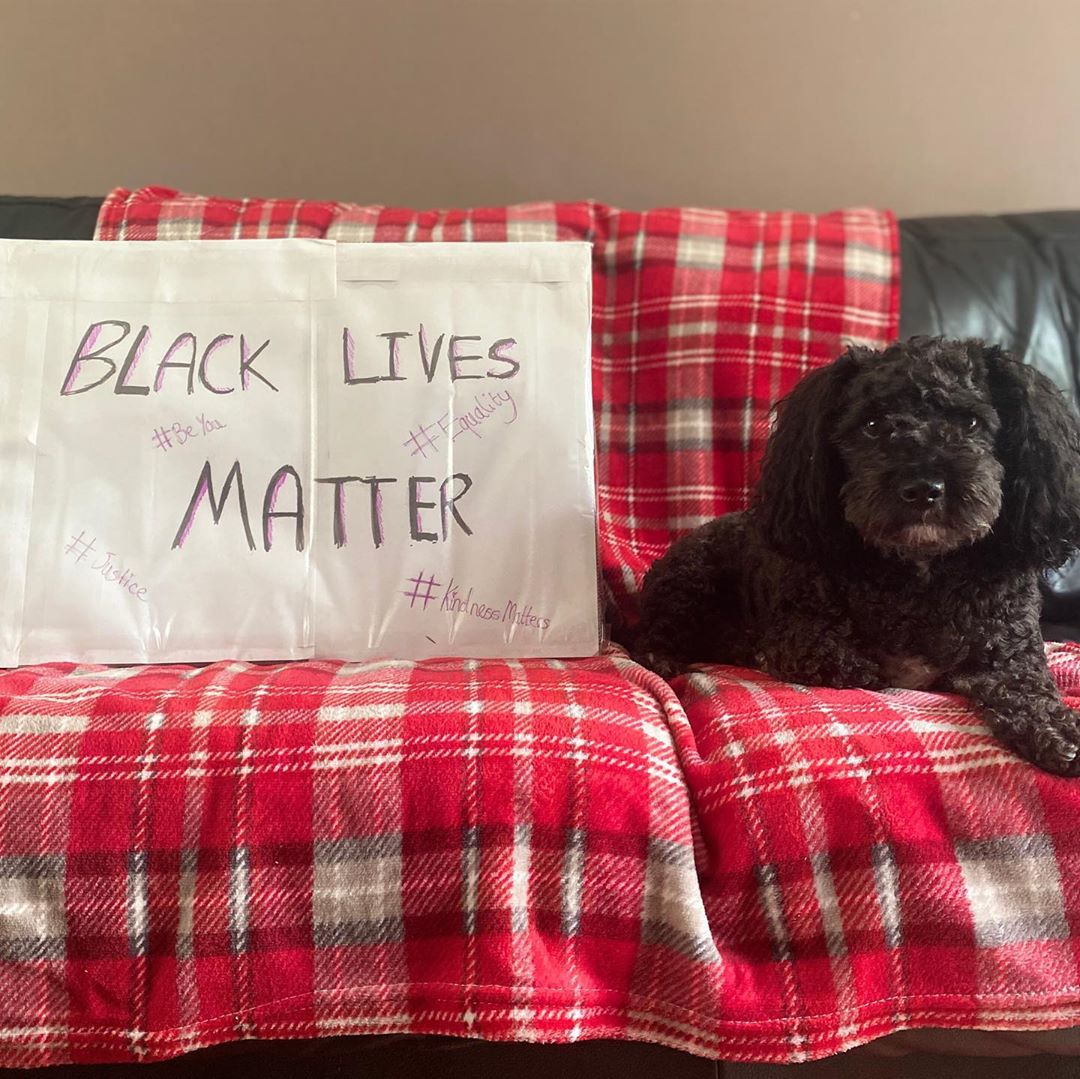 BLACK LIVES
#Be You
#Equality
MATTER
#Justice
#KindnessMatters